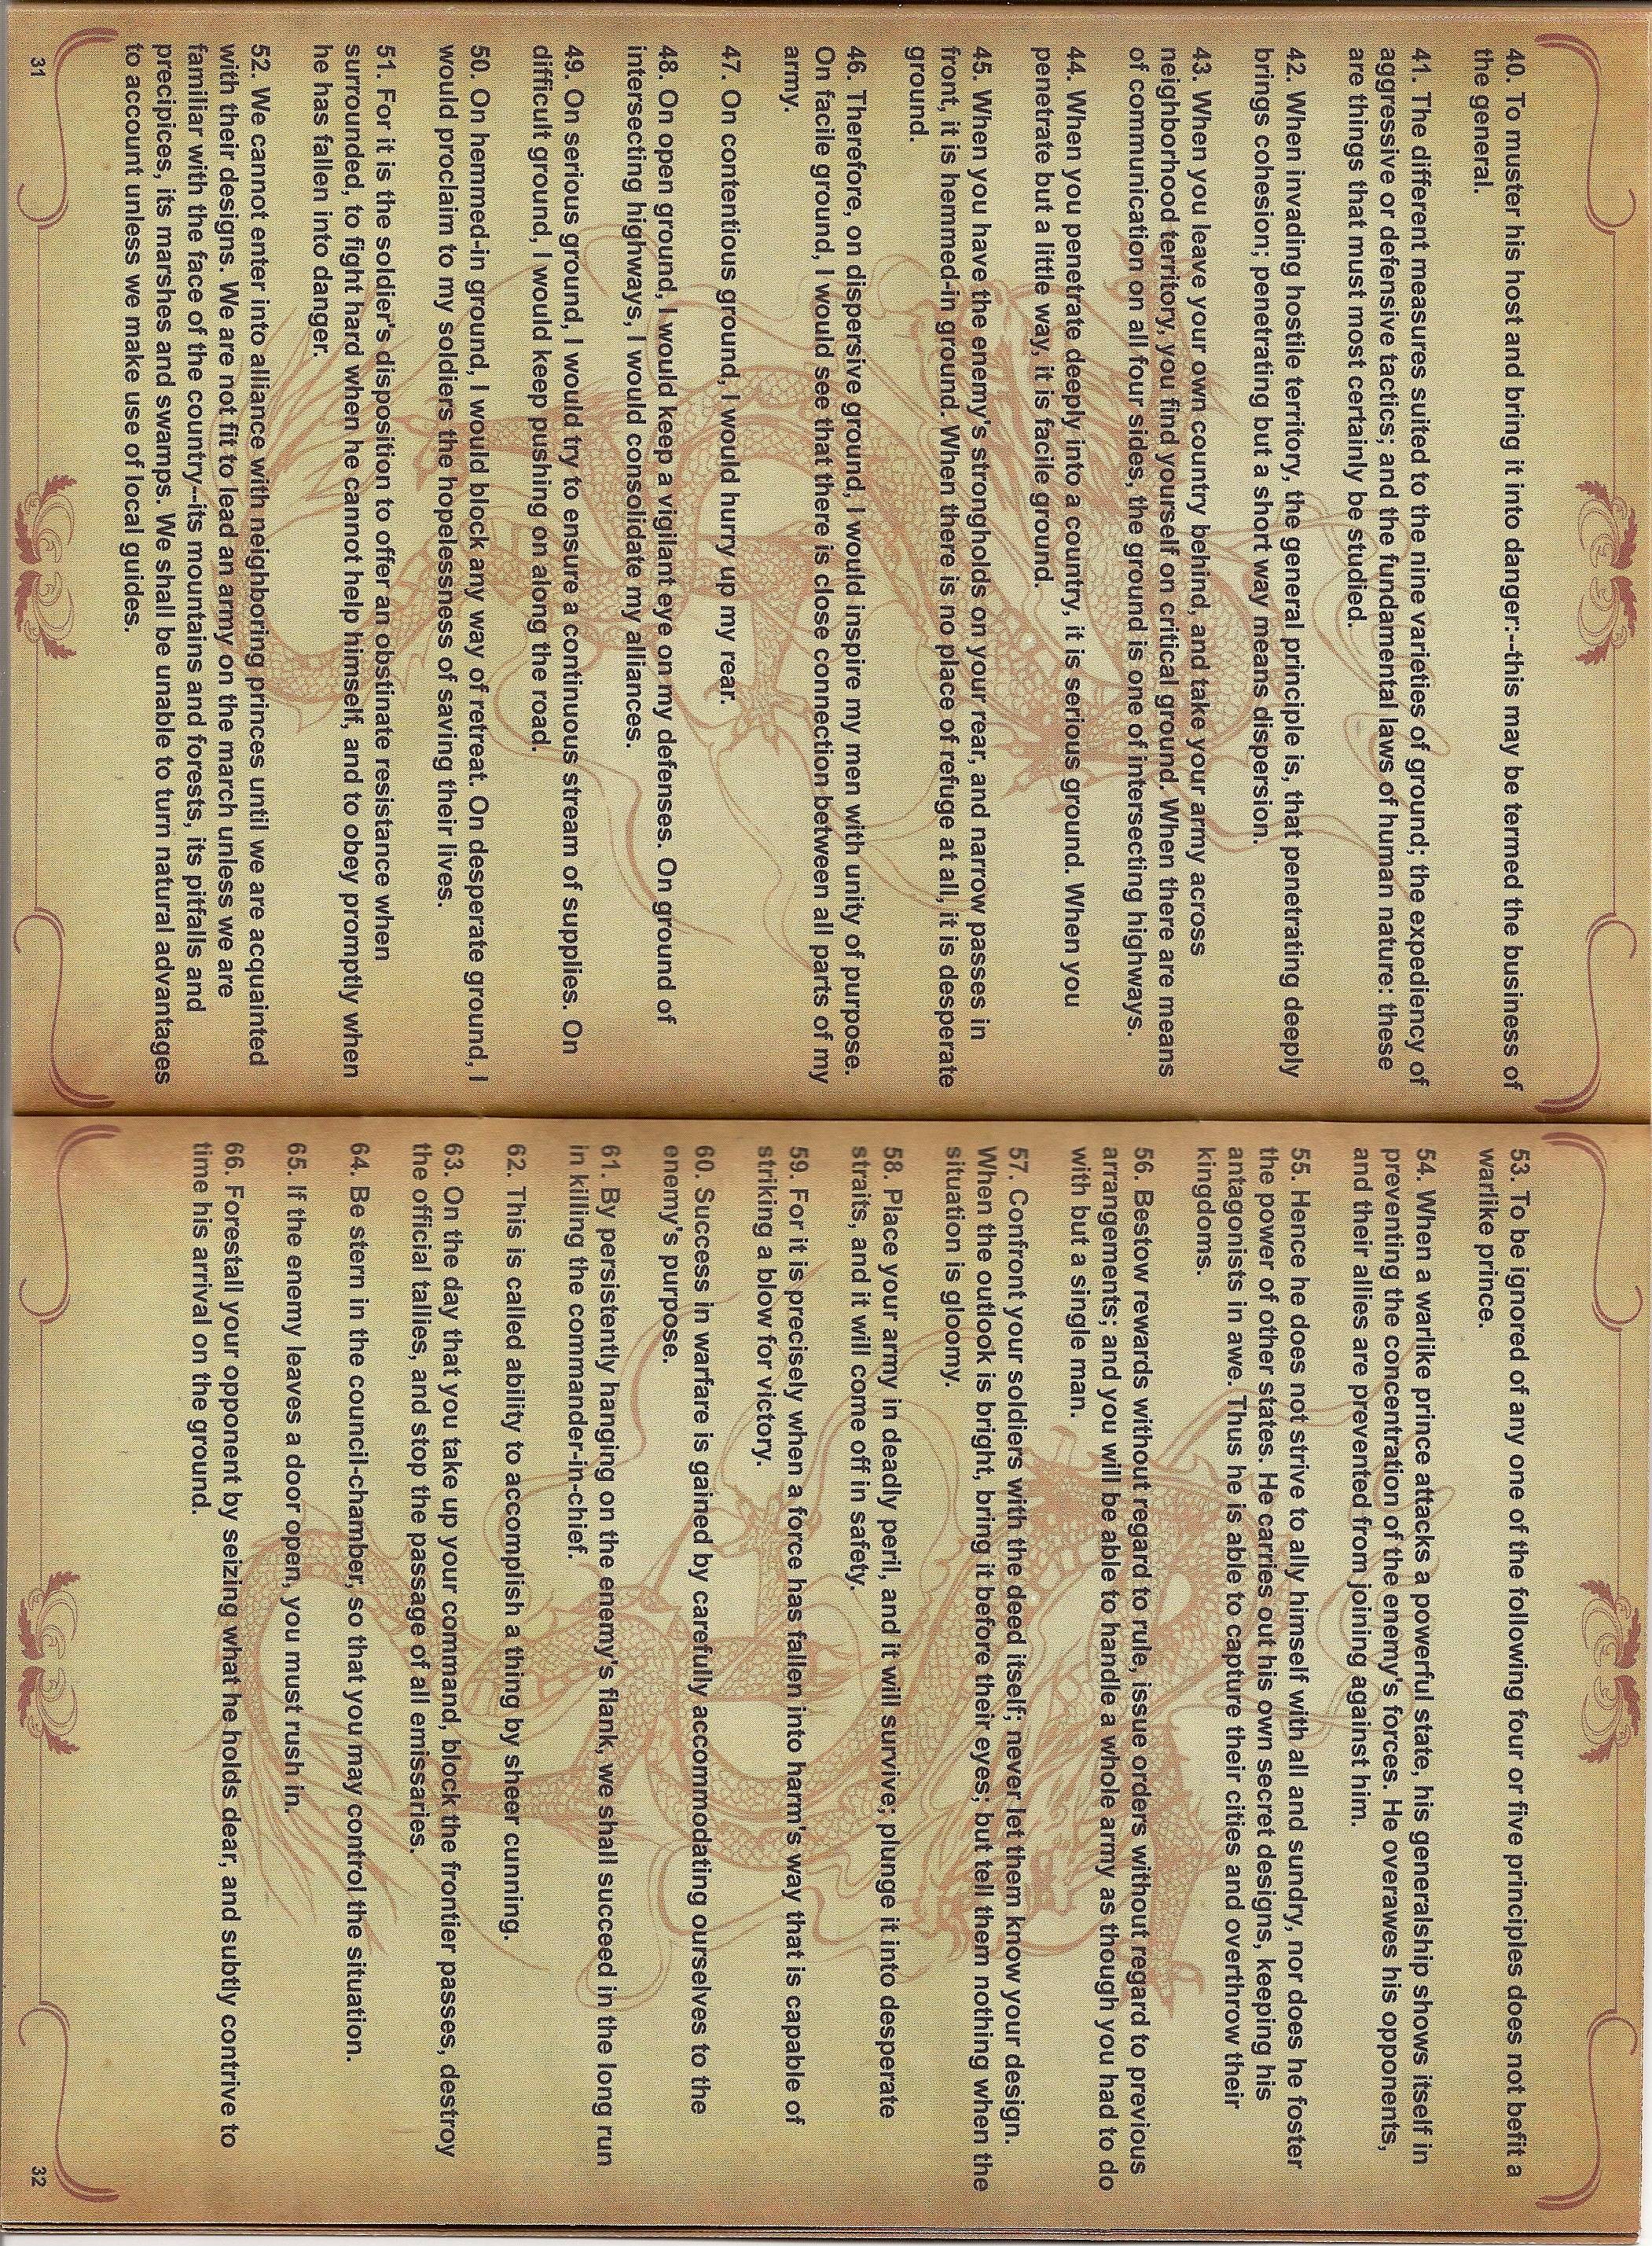 40. To muster his host and bring it into danger:--this may be termed the business of
the general.
41. The different measures suited to the nine varieties of ground; the expediency of
aggressive or defensive tactics; and the fundamental laws of human nature: these
are things that must most certainly be studied.
42. When invading hostile territory, the general principle is, that penetrating deeply
brings cohesion; penetrating but a short way means dispersion.
43. When you leave your own country behind, and take your army across
neighborhood territory, you find yourself on critical ground. When there are means
of communication on all four sides, the ground is one of intersecting highways.
44. When you penetrate deeply into a country, it is serious ground. When you
penetrate but a little way, it is facile ground.
45. When you have the enemy's strongholds on your rear, and narrow passes in
front, it is hemmed-in ground. When there is no place of refuge at all, it is desperate
ground.
46. Therefore, on dispersive ground, I would inspire my men with unity of purpose.
On facile ground, I would see that there is close connection between all parts of my
army.
47. On contentious ground, I would hurry up my rear.
48. On open ground, I would keep a vigilant eye on my defenses. On ground of
intersecting highways, I would consolidate my alliances.
49. On serious ground, I would try to ensure a continuous stream of supplies. On
difficult ground, I would keep pushing on along the road.
50. On hemmed-in ground, I would block any way of retreat. On desperate ground, I
would proclaim to my soldiers the hopelessness of saving their lives.
51. For it is the soldier's disposition to offer an obstinate resistance when
surrounded, to fight hard when he cannot help himself, and to obey promptly when
he has fallen into danger.
52. We cannot enter into alliance with neighboring princes until we are acquainted
with their designs. We are not fit to lead an army on the march unless we are
familiar with the face of the country--its mountains and forests, its pitfalls and
precipices, its marshes and swamps. We shall be unable to turn natural advantages
to account unless we make use of local guides.
31
53. To be ignored of any one of the following four or five principles does not befit a
warlike prince.
54. When a warlike prince attacks a powerful state, his generalship shows itself in
preventing the concentration of the enemy's forces. He overawes his opponents,
and their allies are prevented from joining against him.
55. Hence he does not strive to ally himself with all and sundry, nor does he foster
the power of other states. He carries out his own secret designs, keeping his
antagonists in awe. Thus he is able to capture their cities and overthrow their
kingdoms.
56. Bestow rewards without regard to rule, issue orders without regard to previous
arrangements; and you will be able to handle a whole army as though you had to do
with but a single man.
57. Confront your soldiers with the deed itself; never let them know your design.
When the outlook is bright, bring it before their eyes; but tell them nothing when the
situation is gloomy.
58. Place your army in deadly peril, and it will survive; plunge it into desperate
straits, and it will come off in safety.
59. For it is precisely when a force has fallen into harm's way that is capable of
striking a blow for victory.
60. Success in warfare is gained by carefully accommodating ourselves to the
enemy's purpose.
61. By persistently hanging on the enemy's flank, we shall succeed in the long run
in killing the commander-in-chief.
62. This is called ability to accomplish a thing by sheer cunning.
63. On the day that you take up your command, block the frontier passes, destroy
the official tallies, and stop the passage of all emissaries.
64. Be stern in the council-chamber, so that you may control the situation.
65. If the enemy leaves a door open, you must rush in.
66. Forestall your opponent by seizing what he holds dear, and subtly contrive to
time his arrival on the ground.
32